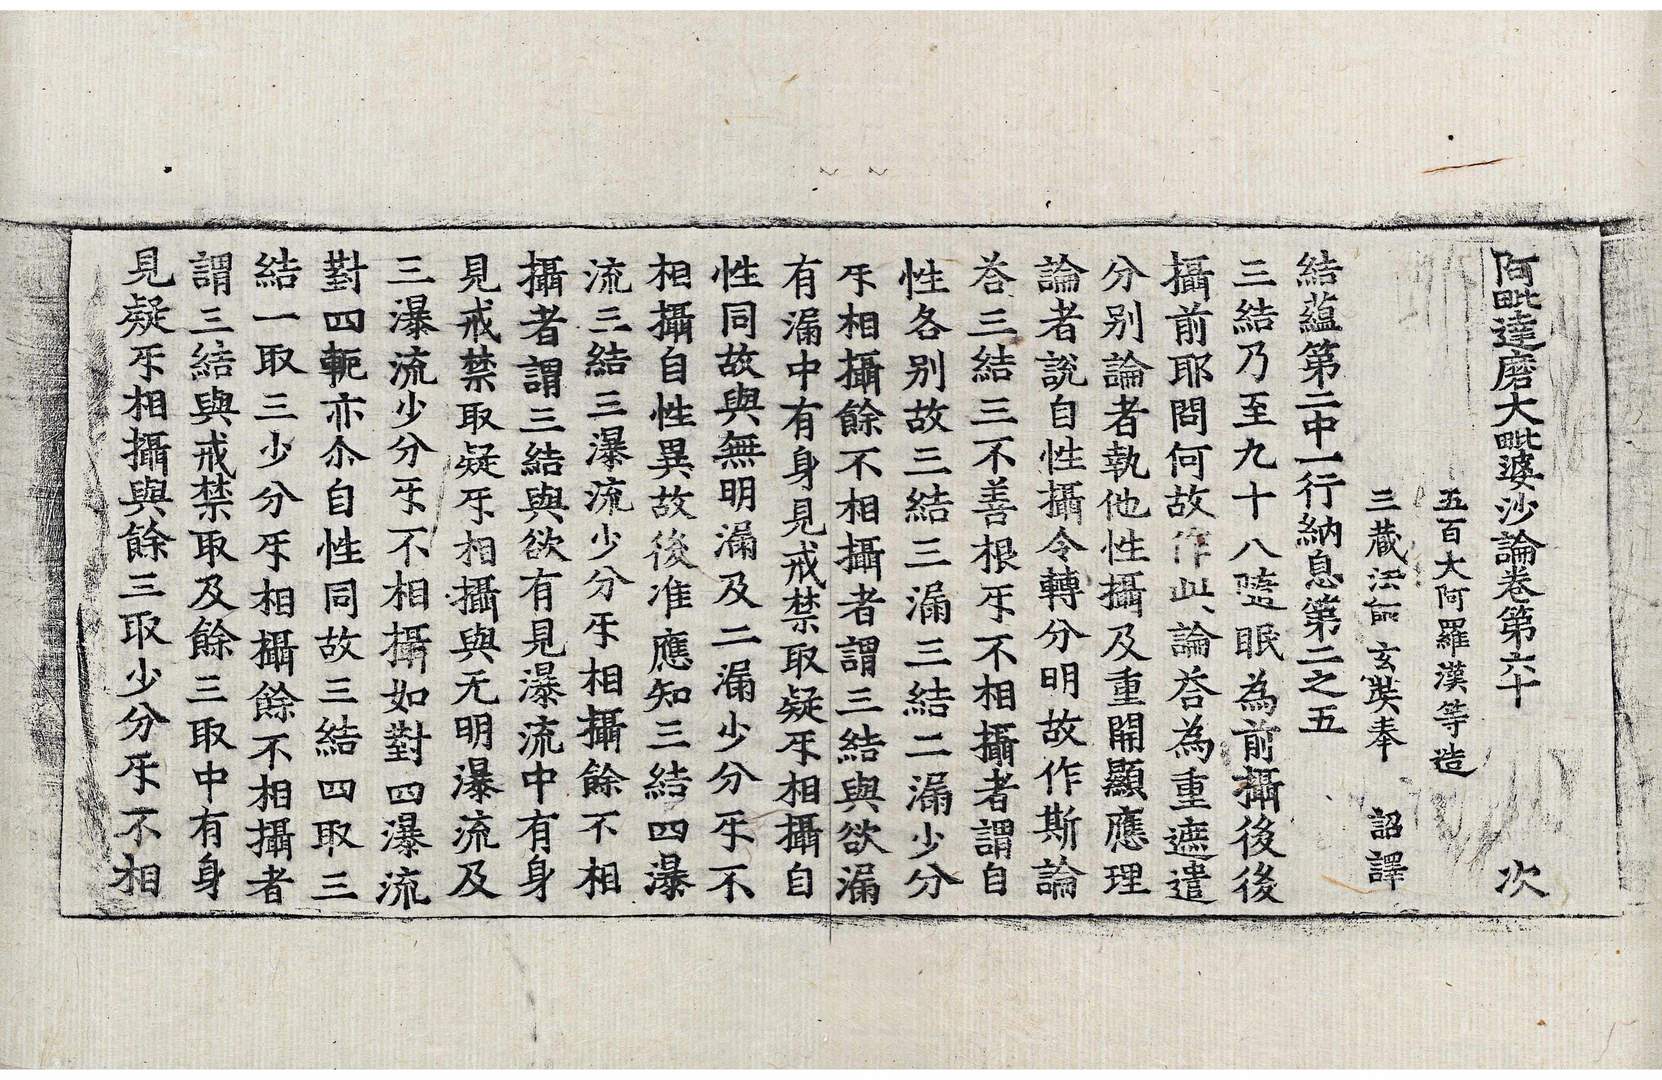 阿毗達磨大毗婆沙論卷第六十 次
五百大阿羅漢等造
三藏法師玄奘奉 詔譯
結蘊第二中一行納息第二之五
三結乃至九十八隨眠為前攝後後
攝前耶問何故作此論荅為重遮遣
分別論者執他性攝及重開顯應理
論者說自性攝令轉分明故作斯論
荅三結三不善根㸦不相攝者謂自
性各別故三結三漏三結二漏少分
㸦相攝餘不相攝者謂三結與欲漏
有漏中有身見戒禁取疑㸦相攝自
性同故與無明漏及二漏少分㸦不
相攝自性異故後准應知三結四瀑
流三結三瀑流少分㸦相攝餘不相
攝者謂三結與欲有見瀑流中有身
見戒禁取疑㸦相攝與无明瀑流及
三瀑流少分㸦不相攝如對四瀑流
對四軛亦尒自性同故三結四取三
結一取三少分㸦相攝餘不相攝者
謂三結與戒禁取及餘三取中有身
見疑㸦相攝與餘三取少分㸦不相